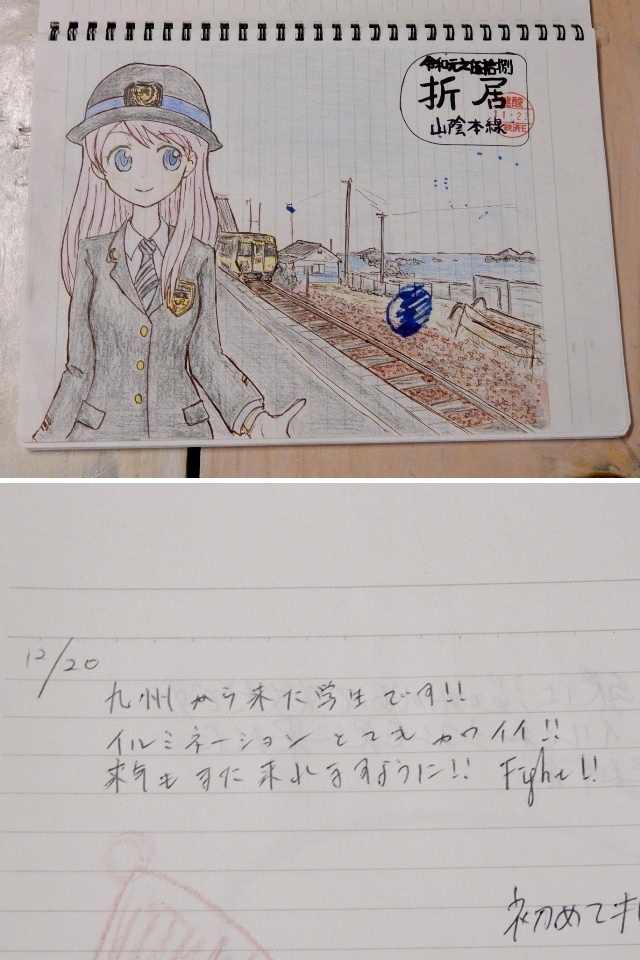 折居
山陰本線
12/20
九州から来た学生です!!
イルミネーション とても カワイイ!!
来年も また 来れますように!! Fight!!
初めて